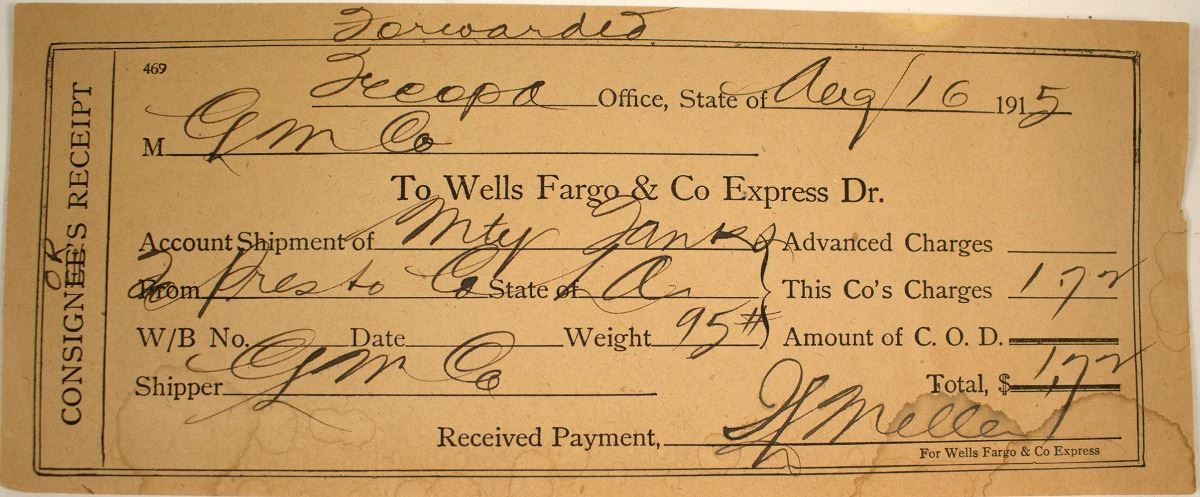 Forwarded
469
Office, State of Aug 16 1915
M G M Co
To Wells Fargo & Co Express Dr.
Account Shipment of Mty Tanks Advanced Charges
From Presto Co State of La This Co's Charges 1.72
W/B No. Date Weight 95# Amount of C. O. D.
Shipper G M Co Total, $ 1.72
Received Payment, Miller
For Wells Fargo & Co Express
CONSIGNEE'S RECEIPT
OR